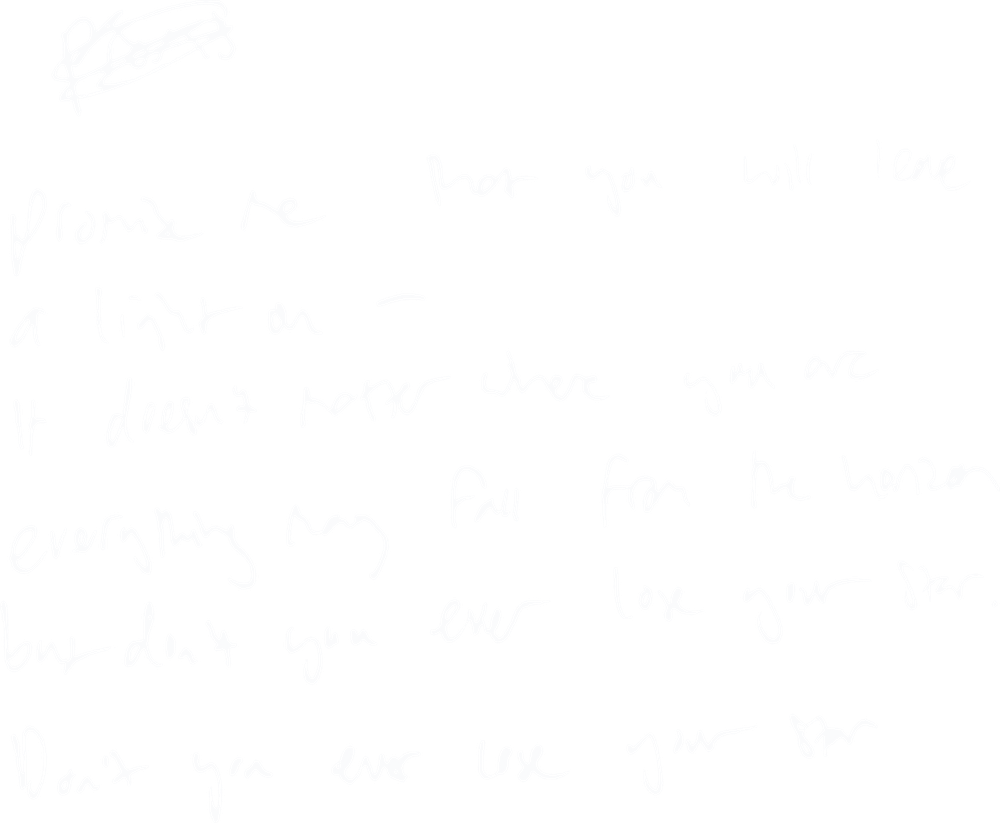 Promise me that you will leave
a light on –
It doesn't matter where you are
everything may fall from the horizon
but don't you ever lose your star.
Don't you ever lose your star